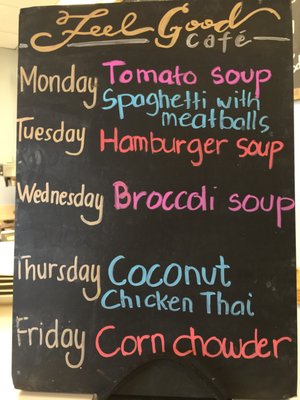 Feel Good
Café
Monday Tomato soup
Spaghetti with
meatballs
Tuesday Hamburger soup
Wednesday Broccoli soup
Thursday Coconut
Chicken Thai
Friday Corn chowder